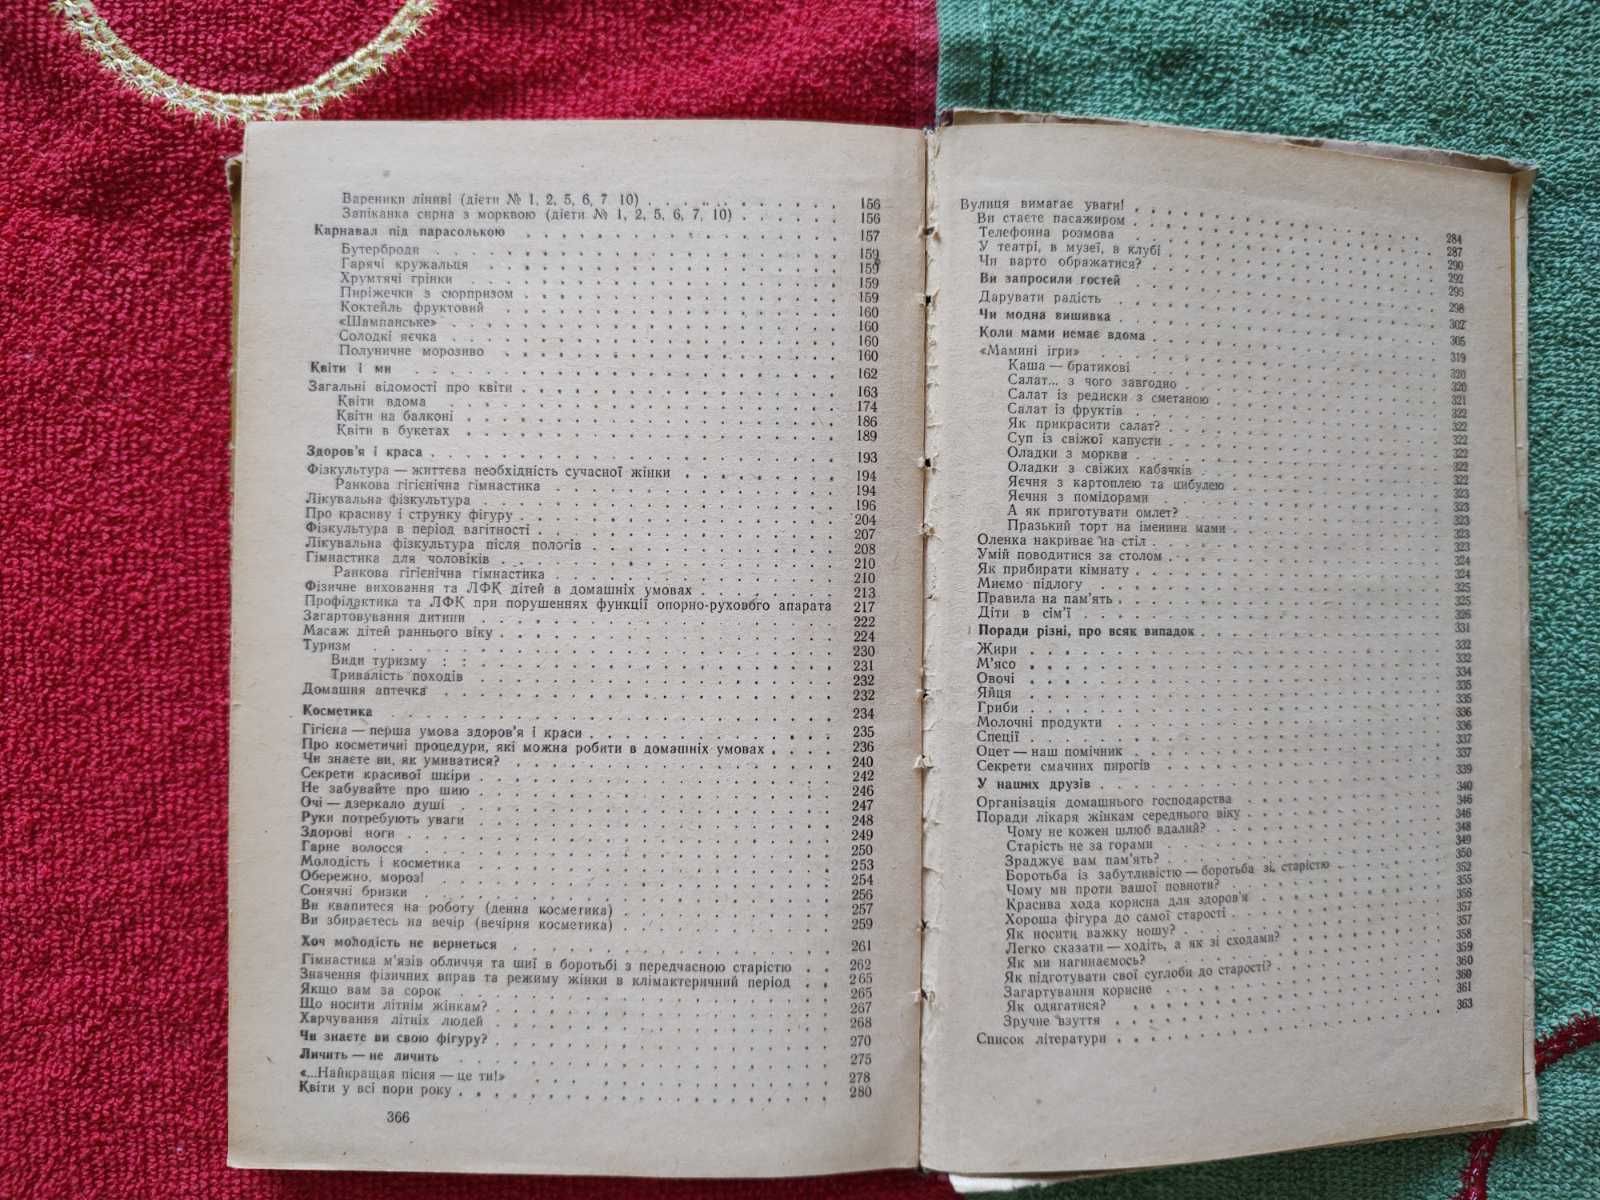 Вареники ліниві (дієти № 1, 2, 5, 6, 7 10) . . . . . . . . 156
Запіканка сирна з морквою (дієти № 1, 2, 5, 6, 7, 10) . . . . . . 156
Карнавал під парасолькою . . . . . . . . 157
Бутерброди . . . . . . . . 159
Гарячі кружальця . . . . . . . . 159
Хрумтячі грінки . . . . . . . . 159
Пиріжечки з сюрпризом . . . . . . . . 159
Коктейль фруктовий . . . . . . . . 160
«Шампанське» . . . . . . . . 160
Солодкі яєчка . . . . . . . . 160
Полуничне морозиво . . . . . . . . 160
Квіти і ми . . . . . . . . 162
Загальні відомості про квіти . . . . . . . . 163
Квіти вдома . . . . . . . . 174
Квіти на балконі . . . . . . . . 186
Квіти в букетах . . . . . . . . 189
Здоров'я і краса . . . . . . . . 193
Фізкультура — життєва необхідність сучасної жінки . . . . . . . . 194
Ранкова гігієнічна гімнастика . . . . . . . . 194
Лікувальна фізкультура . . . . . . . . 196
Про красиву і струнку фігуру . . . . . . . . 204
Фізкультура в період вагітності . . . . . . . . 207
Лікувальна фізкультура після пологів . . . . . . . . 208
Гімнастика для чоловіків . . . . . . . . 210
Ранкова гігієнічна гімнастика . . . . . . . . 210
Фізичне виховання та ЛФК дітей в домашніх умовах . . . . . . . . 213
Профілактика та ЛФК при порушеннях функції опорно-рухового апарата 217
Загартовування дитини . . . . . . . . 222
Масаж дітей раннього віку . . . . . . . . 224
Туризм . . . . . . . . 230
Види туризму : : . . . . . . . . 231
Тривалість походів . . . . . . . . 232
Домашня аптечка . . . . . . . . 232
Косметика . . . . . . . . 234
Гігієна — перша умова здоров'я і краси . . . . . . . . 235
Про косметичні процедури, які можна робити в домашніх умовах . . . . 236
Чи знаєте ви, як умиватися? . . . . . . . . 240
Секрети красивої шкіри . . . . . . . . 242
Не забувайте про шию . . . . . . . . 246
Очі — дзеркало душі . . . . . . . . 247
Руки потребують уваги . . . . . . . . 248
Здорові ноги . . . . . . . . 249
Гарне волосся . . . . . . . . 250
Молодість і косметика . . . . . . . . 253
Обережно, мороз! . . . . . . . . 254
Сонячні бризки . . . . . . . . 256
Ви квапитеся на роботу (денна косметика) . . . . . . . . 257
Ви збираєтесь на вечір (вечірня косметика) . . . . . . . . 259
Хоч молодість не вернеться . . . . . . . . 261
Гімнастика м'язів обличчя та шиї в боротьбі з передчасною старістю . . 262
Значення фізичних вправ та режиму жінки в клімактеричний період . . 265
Якщо вам за сорок . . . . . . . . 265
Що носити літнім жінкам? . . . . . . . . 267
Харчування літніх людей . . . . . . . . 268
Чи знаєте ви свою фігуру? . . . . . . . . 270
Личить — не личить . . . . . . . . 275
«...Найкращая пісня — це ти!» . . . . . . . . 278
Квіти у всі пори року . . . . . . . . 280
366
Вулиця вимагає уваги! . . . . . . . . 284
Ви стаєте пасажиром . . . . . . . . 287
Телефонна розмова . . . . . . . . 290
У театрі, в музеї, в клубі . . . . . . . . 292
Чи варто ображатися? . . . . . . . . 295
Ви запросили гостей . . . . . . . . 298
Дарувати радість . . . . . . . . 302
Чи модна вишивка . . . . . . . . 305
Коли мами немає вдома . . . . . . . . 319
«Мамині ігри» . . . . . . . . 320
Каша — братикові . . . . . . . . 320
Салат... з чого завгодно . . . . . . . . 321
Салат із редиски з сметаною . . . . . . . . 322
Салат із фруктів . . . . . . . . 322
Як прикрасити салат? . . . . . . . . 322
Суп із свіжої капусти . . . . . . . . 322
Оладки з моркви . . . . . . . . 322
Оладки з свіжих кабачків . . . . . . . . 322
Яєчня з картоплею та цибулею . . . . . . . . 323
Яєчня з помідорами . . . . . . . . 323
А як приготувати омлет? . . . . . . . . 323
Празький торт на іменини мами . . . . . . . . 323
Оленка накриває на стіл . . . . . . . . 323
Умій поводитися за столом . . . . . . . . 324
Як прибирати кімнату . . . . . . . . 324
Миємо підлогу . . . . . . . . 325
Правила на пам'ять . . . . . . . . 325
Діти в сім'ї . . . . . . . . 326
Поради різні, про всяк випадок . . . . . . . . 331
Жири . . . . . . . . 332
М'ясо . . . . . . . . 332
Овочі . . . . . . . . 334
Яйця . . . . . . . . 335
Гриби . . . . . . . . 335
Молочні продукти . . . . . . . . 336
Спеції . . . . . . . . 336
Оцет — наш помічник . . . . . . . . 337
Секрети смачних пирогів . . . . . . . . 337
У наших друзів . . . . . . . . 339
Організація домашнього господарства . . . . . . . . 340
Поради лікаря жінкам середнього віку . . . . . . . . 346
Чому не кожен шлюб вдалий? . . . . . . . . 346
Старість не за горами . . . . . . . . 348
Зраджує вам пам'ять? . . . . . . . . 349
Боротьба із забутливістю — боротьба зі старістю . . . . . . 350
Чому ми проти вашої повноти? . . . . . . . . 352
Красива хода корисна для здоров'я . . . . . . . . 355
Хороша фігура до самої старості . . . . . . . . 356
Як носити важку ношу? . . . . . . . . 357
Легко сказати — ходіть, а як зі сходами? . . . . . . . . 357
Як ми нагинаємось? . . . . . . . . 358
Як підготувати свої суглоби до старості? . . . . . . . . 359
Загартування корисне . . . . . . . . 360
Як одягатися? . . . . . . . . 360
Зручне взуття . . . . . . . . 361
Список літератури . . . . . . . . 363